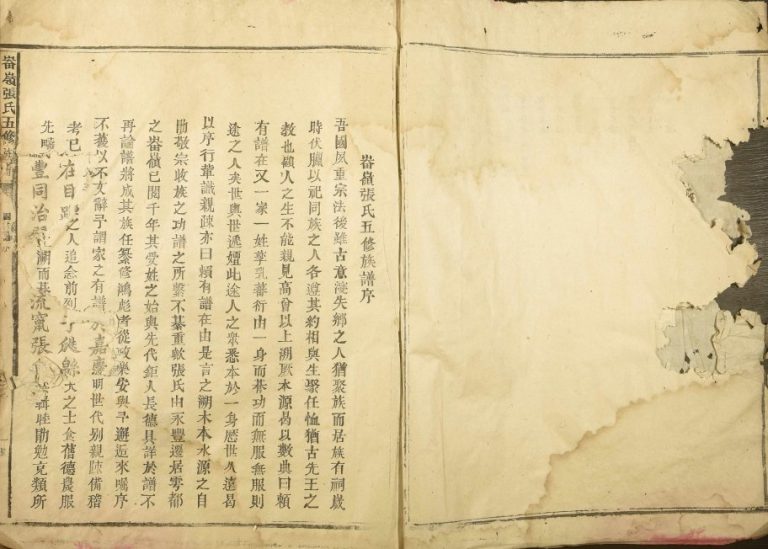 畨嶺張氏五修族譜序
吾國夙重宗法後雖古意浸失鄉之人猶聚族而居族有祠歲
時伏臘以祀同族之人各遵其約相與生聚任恤猶古先王之
教也顧人之生不能親見高曾以上溯厥本源曷以數典曰賴
有譜在又一家一姓孳乳蕃衍由一身而朞功而無服無服則
途之人矣世與世遞嬗此途人之衆悉本於一身歷世久遠曷
以序行輩識親疎亦曰賴有譜在由是言之溯木本水源之自
勖敬宗收族之功譜之所繫不綦重歟張氏由永豐遷居雩都
之畨嶺已閱千年其受姓之始與先代鉅人長德具詳於譜不
再論譜將成其族任纂修鴻彪者從政樂安與予邂逅來囑序
不獲以不文辭予謂家之有譜 明世代别親疎備稽
考已 之人追念前烈 大之士食舊德農服
先疇 睦勖勉克類所
畨嶺張氏五修
在目
嘉慶
豐同治 湖而碁流寓張
縣